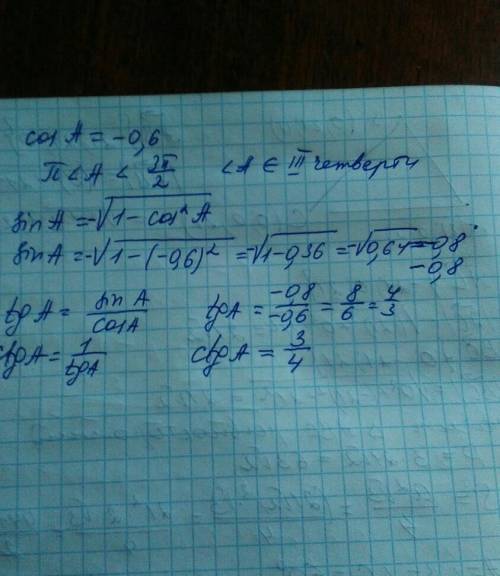 cos A = -0,6
π < A < 3π/2   <A ∈ III четверти
sin A = -√(1 - cos² A)
sin A = -√(1 - (-0,6)²) = -√(1-0,36) = -√0,64 = -0,8
-0,8
tg A = sin A / cos A   tg A = -0,8/-0,6 = 8/6 = 4/3
ctg A = 1/tg A   ctg A = 3/4